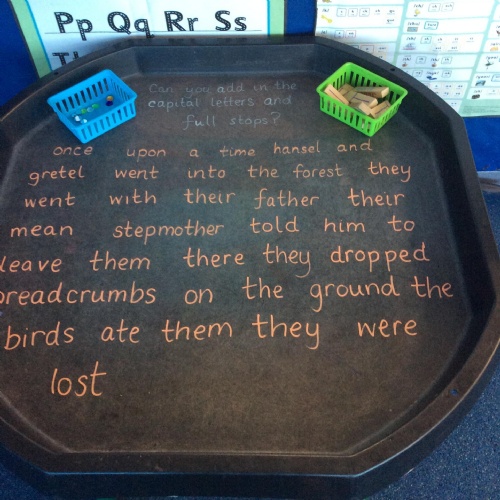 Pp Qq Rr Ss
Can you add in the
capital letters and
full stops?
once upon a time hansel and
gretel went into the forest they
went with their father their
mean stepmother told him to
leave them there they dropped
breadcrumbs on the ground the
birds ate them they were
lost